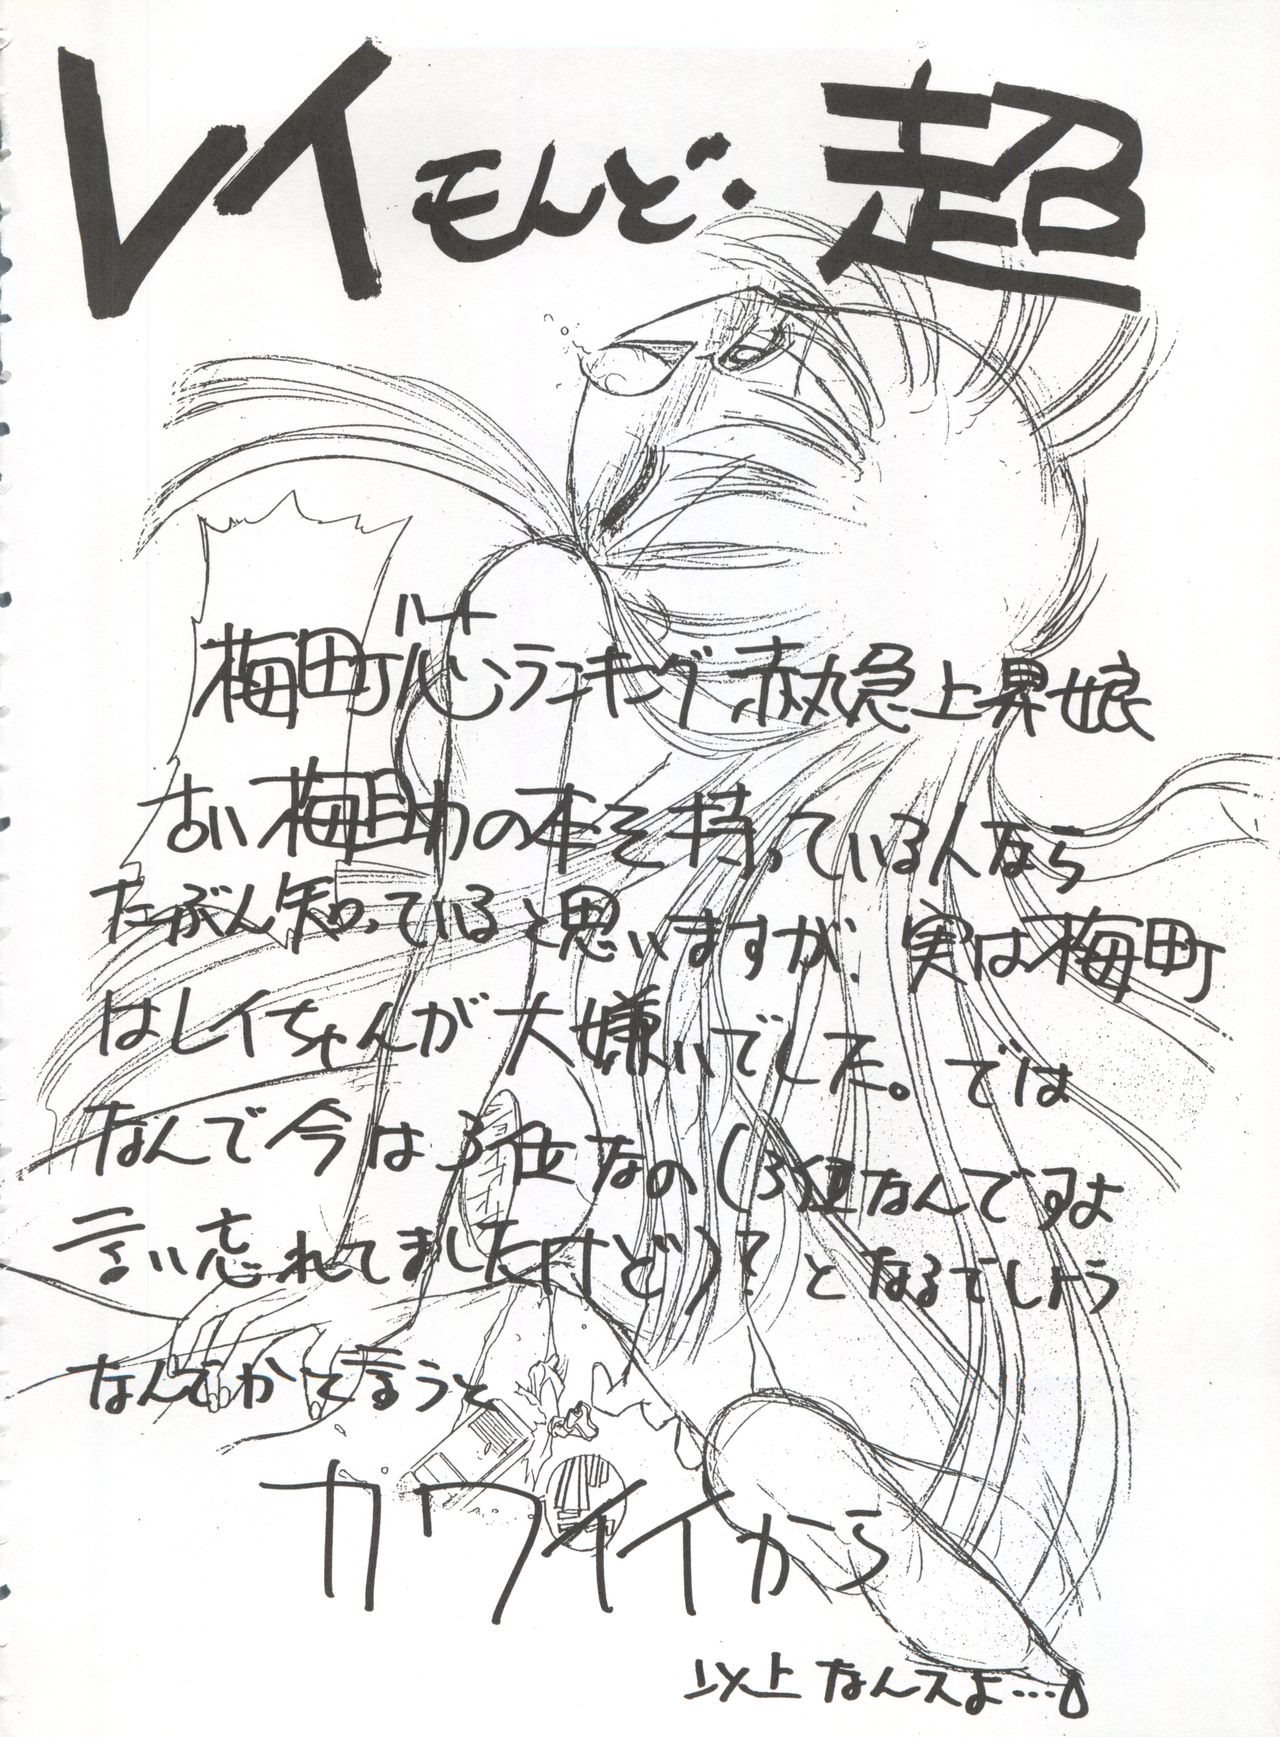 レイもんど・超
梅田町心ランキング赤丸急上昇娘
ハート
古い梅助の本を持っている人なら
たぶん知っていると思いますが、実は梅町
はレイちゃんが大嫌いでした。では
なんで今は3位なの(3位なんですよ
言い忘れてましたけど)?となるでしょう
なんでかて言うと
カワイイから
以上なんスよ…。